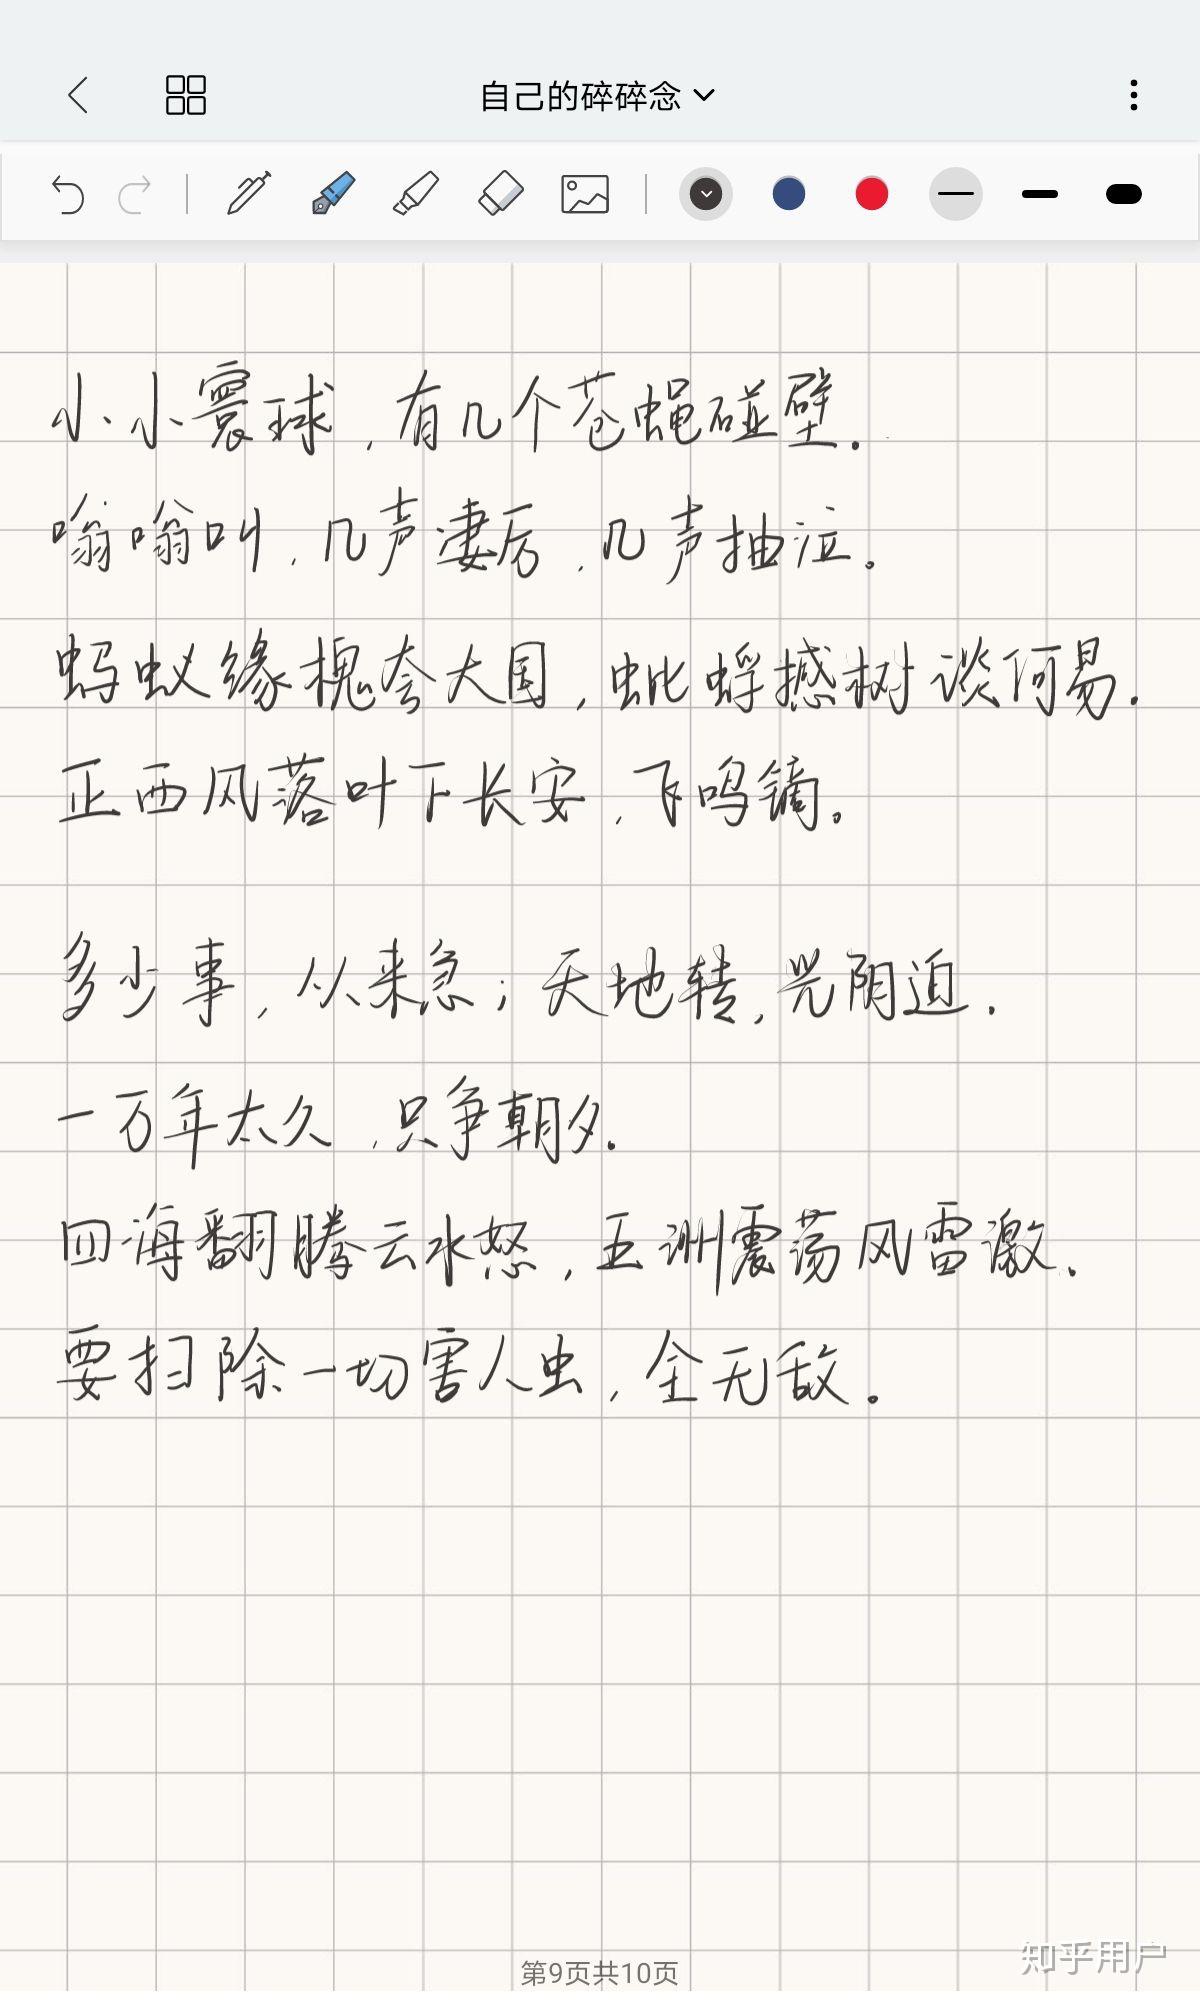 自己的碎碎念
小小寰球,有几个苍蝇碰壁.
嗡嗡叫,几声凄厉,几声抽泣。
蚂蚁缘槐夸大国,蚍蜉撼树谈何易.
正西风落叶下长安,飞鸣镝。
多少事,从来急;天地转,光阴迫.
一万年太久,只争朝夕.
四海翻腾云水怒,五洲震荡风雷激.
要扫除一切害人虫,全无敌。
第9页共10页
知乎用户